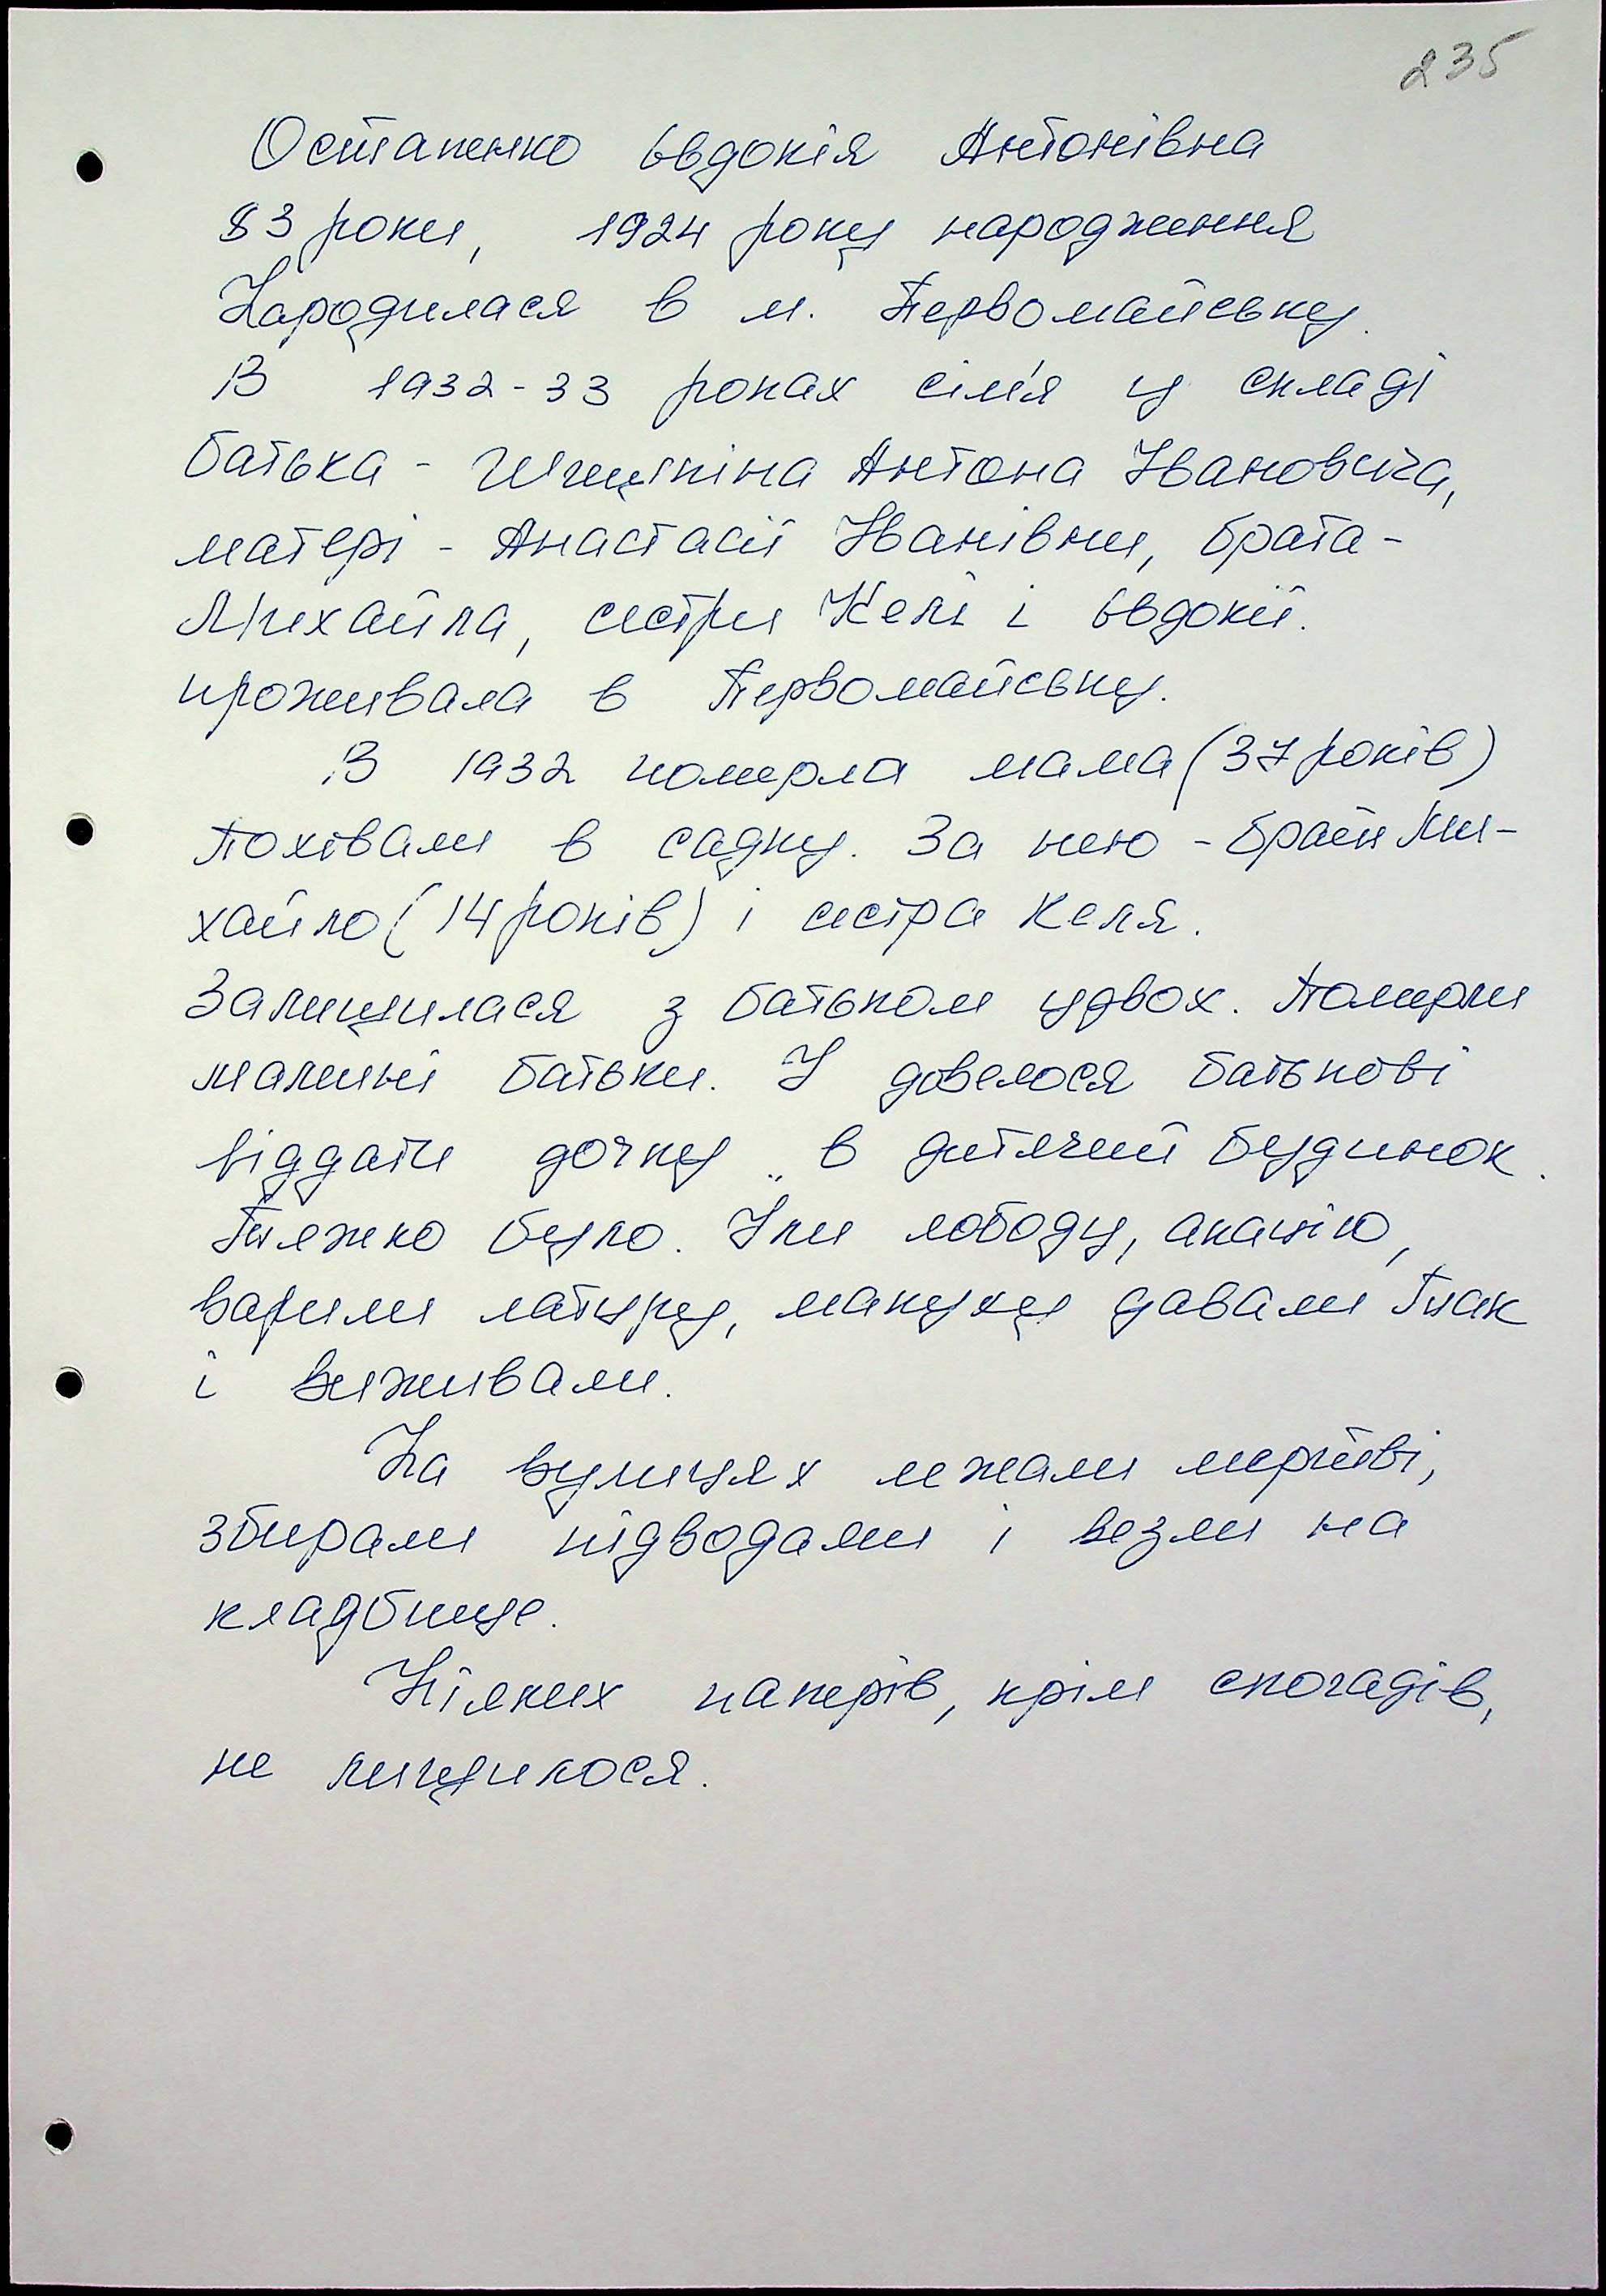 235
Остапенко Євдокія Антонівна
83 роки, 1924 року народження
Народилася в м. Первомайську.
В 1932-33 роках сім'я у складі
батька - Антона Івановича,
матері - Анастасії Іванівни, брата -
Михайла, сестри Келі і Євдокії.
проживала в Первомайську.
В 1932 померла мама (37 років)
Поховали в садку. За нею - брат Ми-
хайло (14 років) і сестра Келя.
Залишилася з батьком удвох. Померли
батьки. І довелося батькові
віддати дочку в дитячий будинок.
Тяжко було. Їли лободу, акацію,
варили затирку, макуху давали Так
і виживали.
На вулицях лежали мертві,
збирали підводами і везли на
кладбище.
Ніяких паперів, крім спогадів,
не лишилося.